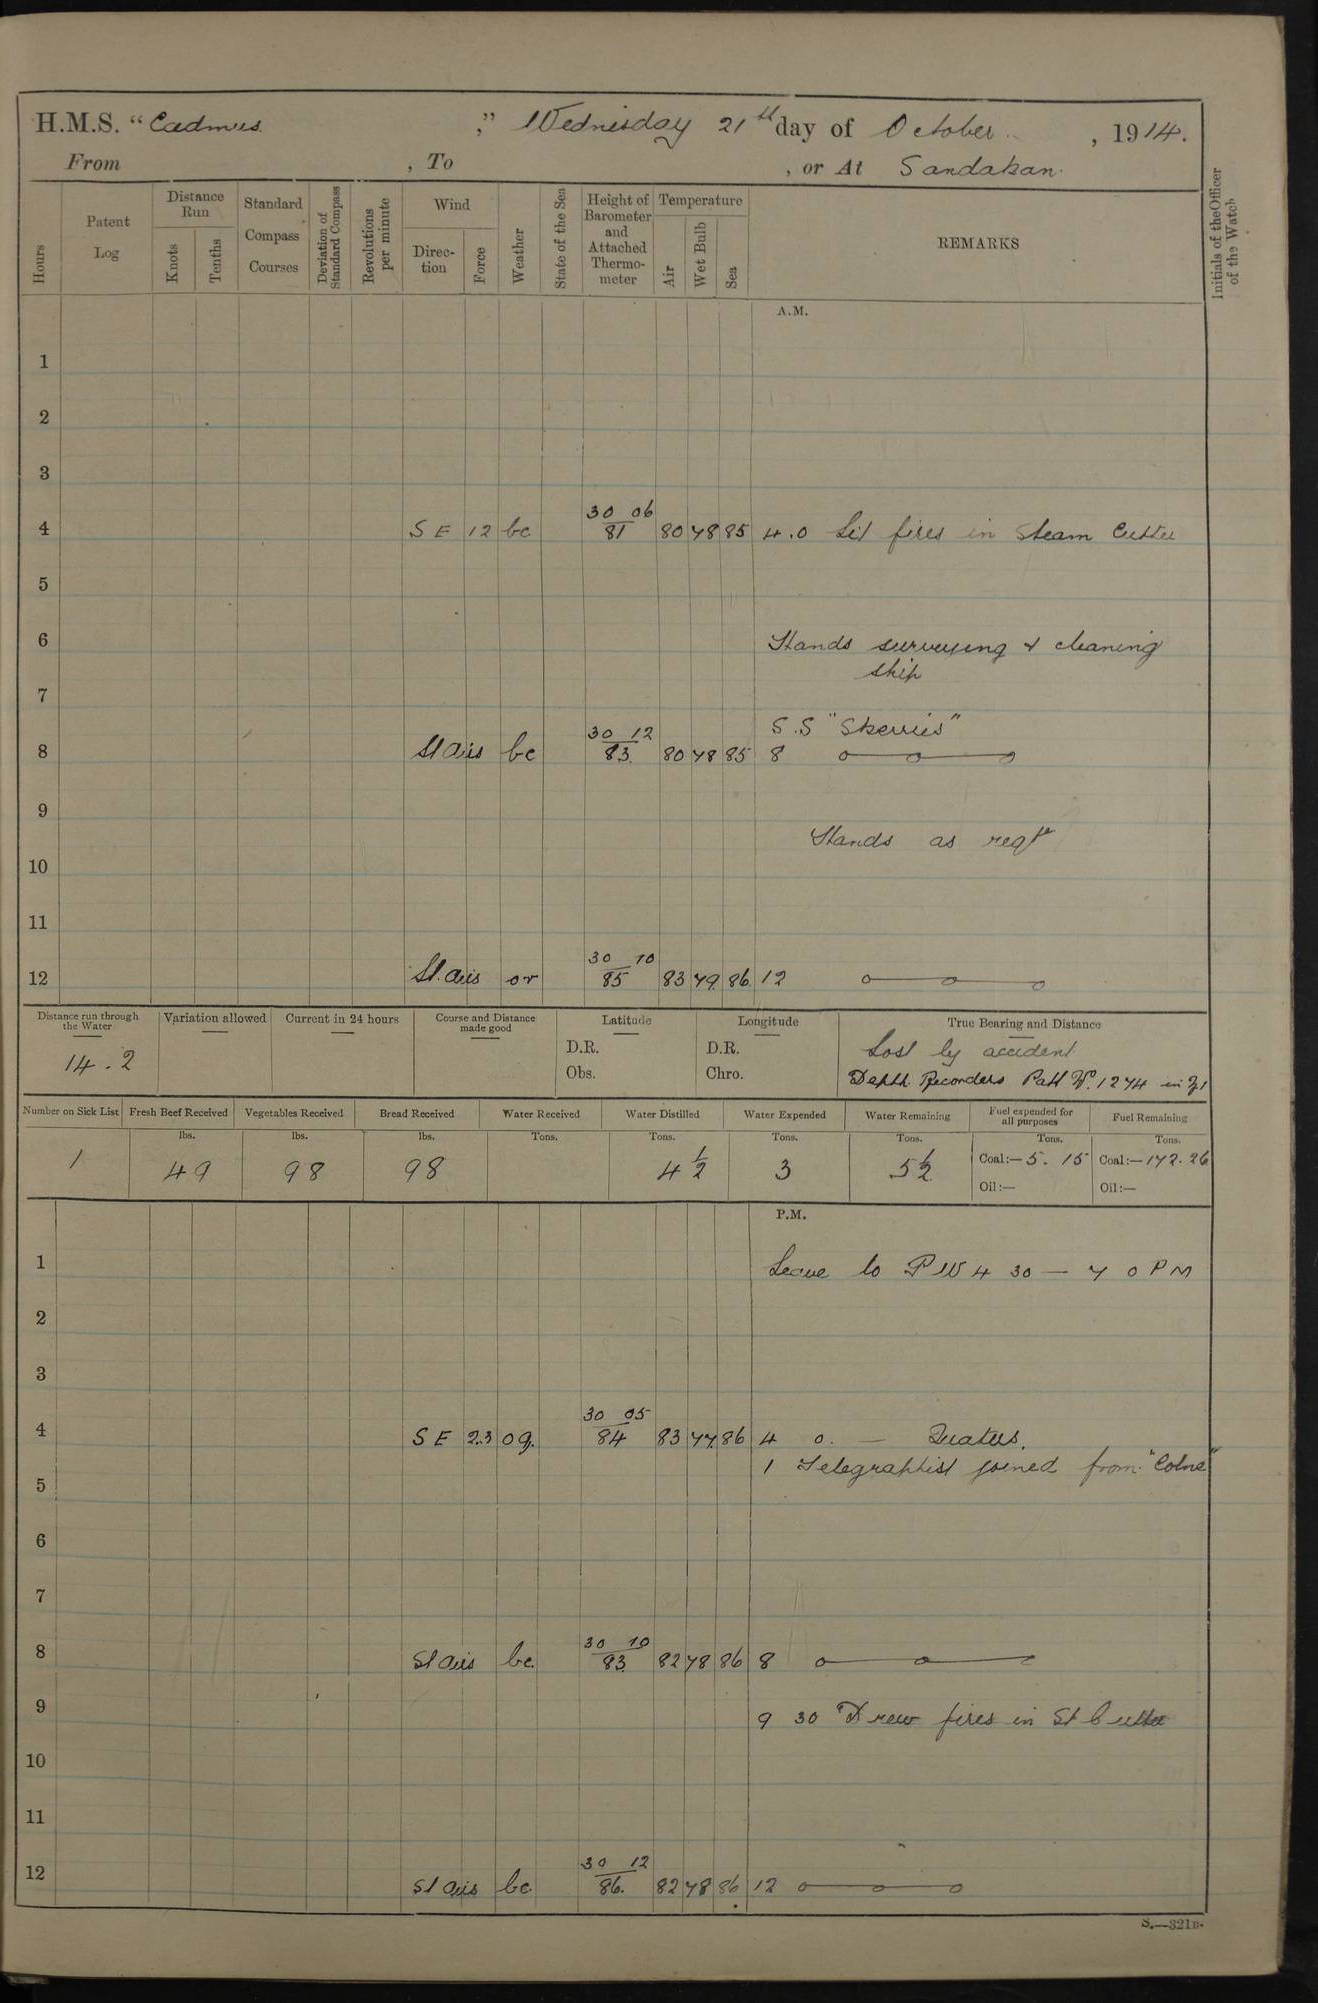 H.M.S. "Cadmus ," Wednesday 21th day of October , 1914.
From , To , or At Sandakan
Hours
Patent Log
Distance Run
Knots
Tenths
Standard Compass Courses
Deviation of Standard Compass
Revolutions per minute
Wind
Direction
Force
Weather
State of the Sea
Height of Barometer and Attached Thermometer
Temperature
Air
Wet Bulb
Sea
REMARKS
Initials of the Officer of the Watch
A.M.
1
2
3
4 SE 12 bc 30 06 81 80 78 85 4.0 Lit fires in Steam Cutter
5
6 Hands surveying & cleaning
ship
7
S.S "Skerries"
8 St airs bc 30 12 83 80 78 85 8
9
Hands as reqd
10
11
12 St. airs or 30 10 85 83 79 86 12
Distance run through the Water
14.2
Variation allowed
Current in 24 hours
Course and Distance made good
Latitude
D.R.
Obs.
Longitude
D.R.
Chro.
True Bearing and Distance
Lost by accident
Depth Recorders Patt W. 1274 in
Number on Sick List
1
Fresh Beef Received
lbs.
49
Vegetables Received
lbs.
98
Bread Received
lbs.
98
Water Received
Tons.
Water Distilled
Tons.
4 1/2
Water Expended
Tons.
3
Water Remaining
Tons.
5 1/2
Fuel expended for all purposes
Tons.
Coal:— 5.15
Oil:—
Fuel Remaining
Tons.
Coal:— 172.26
Oil:—
P.M.
1 Leave to P W 4 30 — 7 0 PM
2
3
4 SE 2.3 og. 30 05 84 83 77 86 4 0. — Quaters.
1 Telegraphist joined from "Colne"
5
6
7
8 St airs bc. 30 10 83 82 78 86 8
9 9 30 Drew fires in St Cutter
10
11
12 St airs bc 30 12 86. 82 78 86 12
S.—321B.